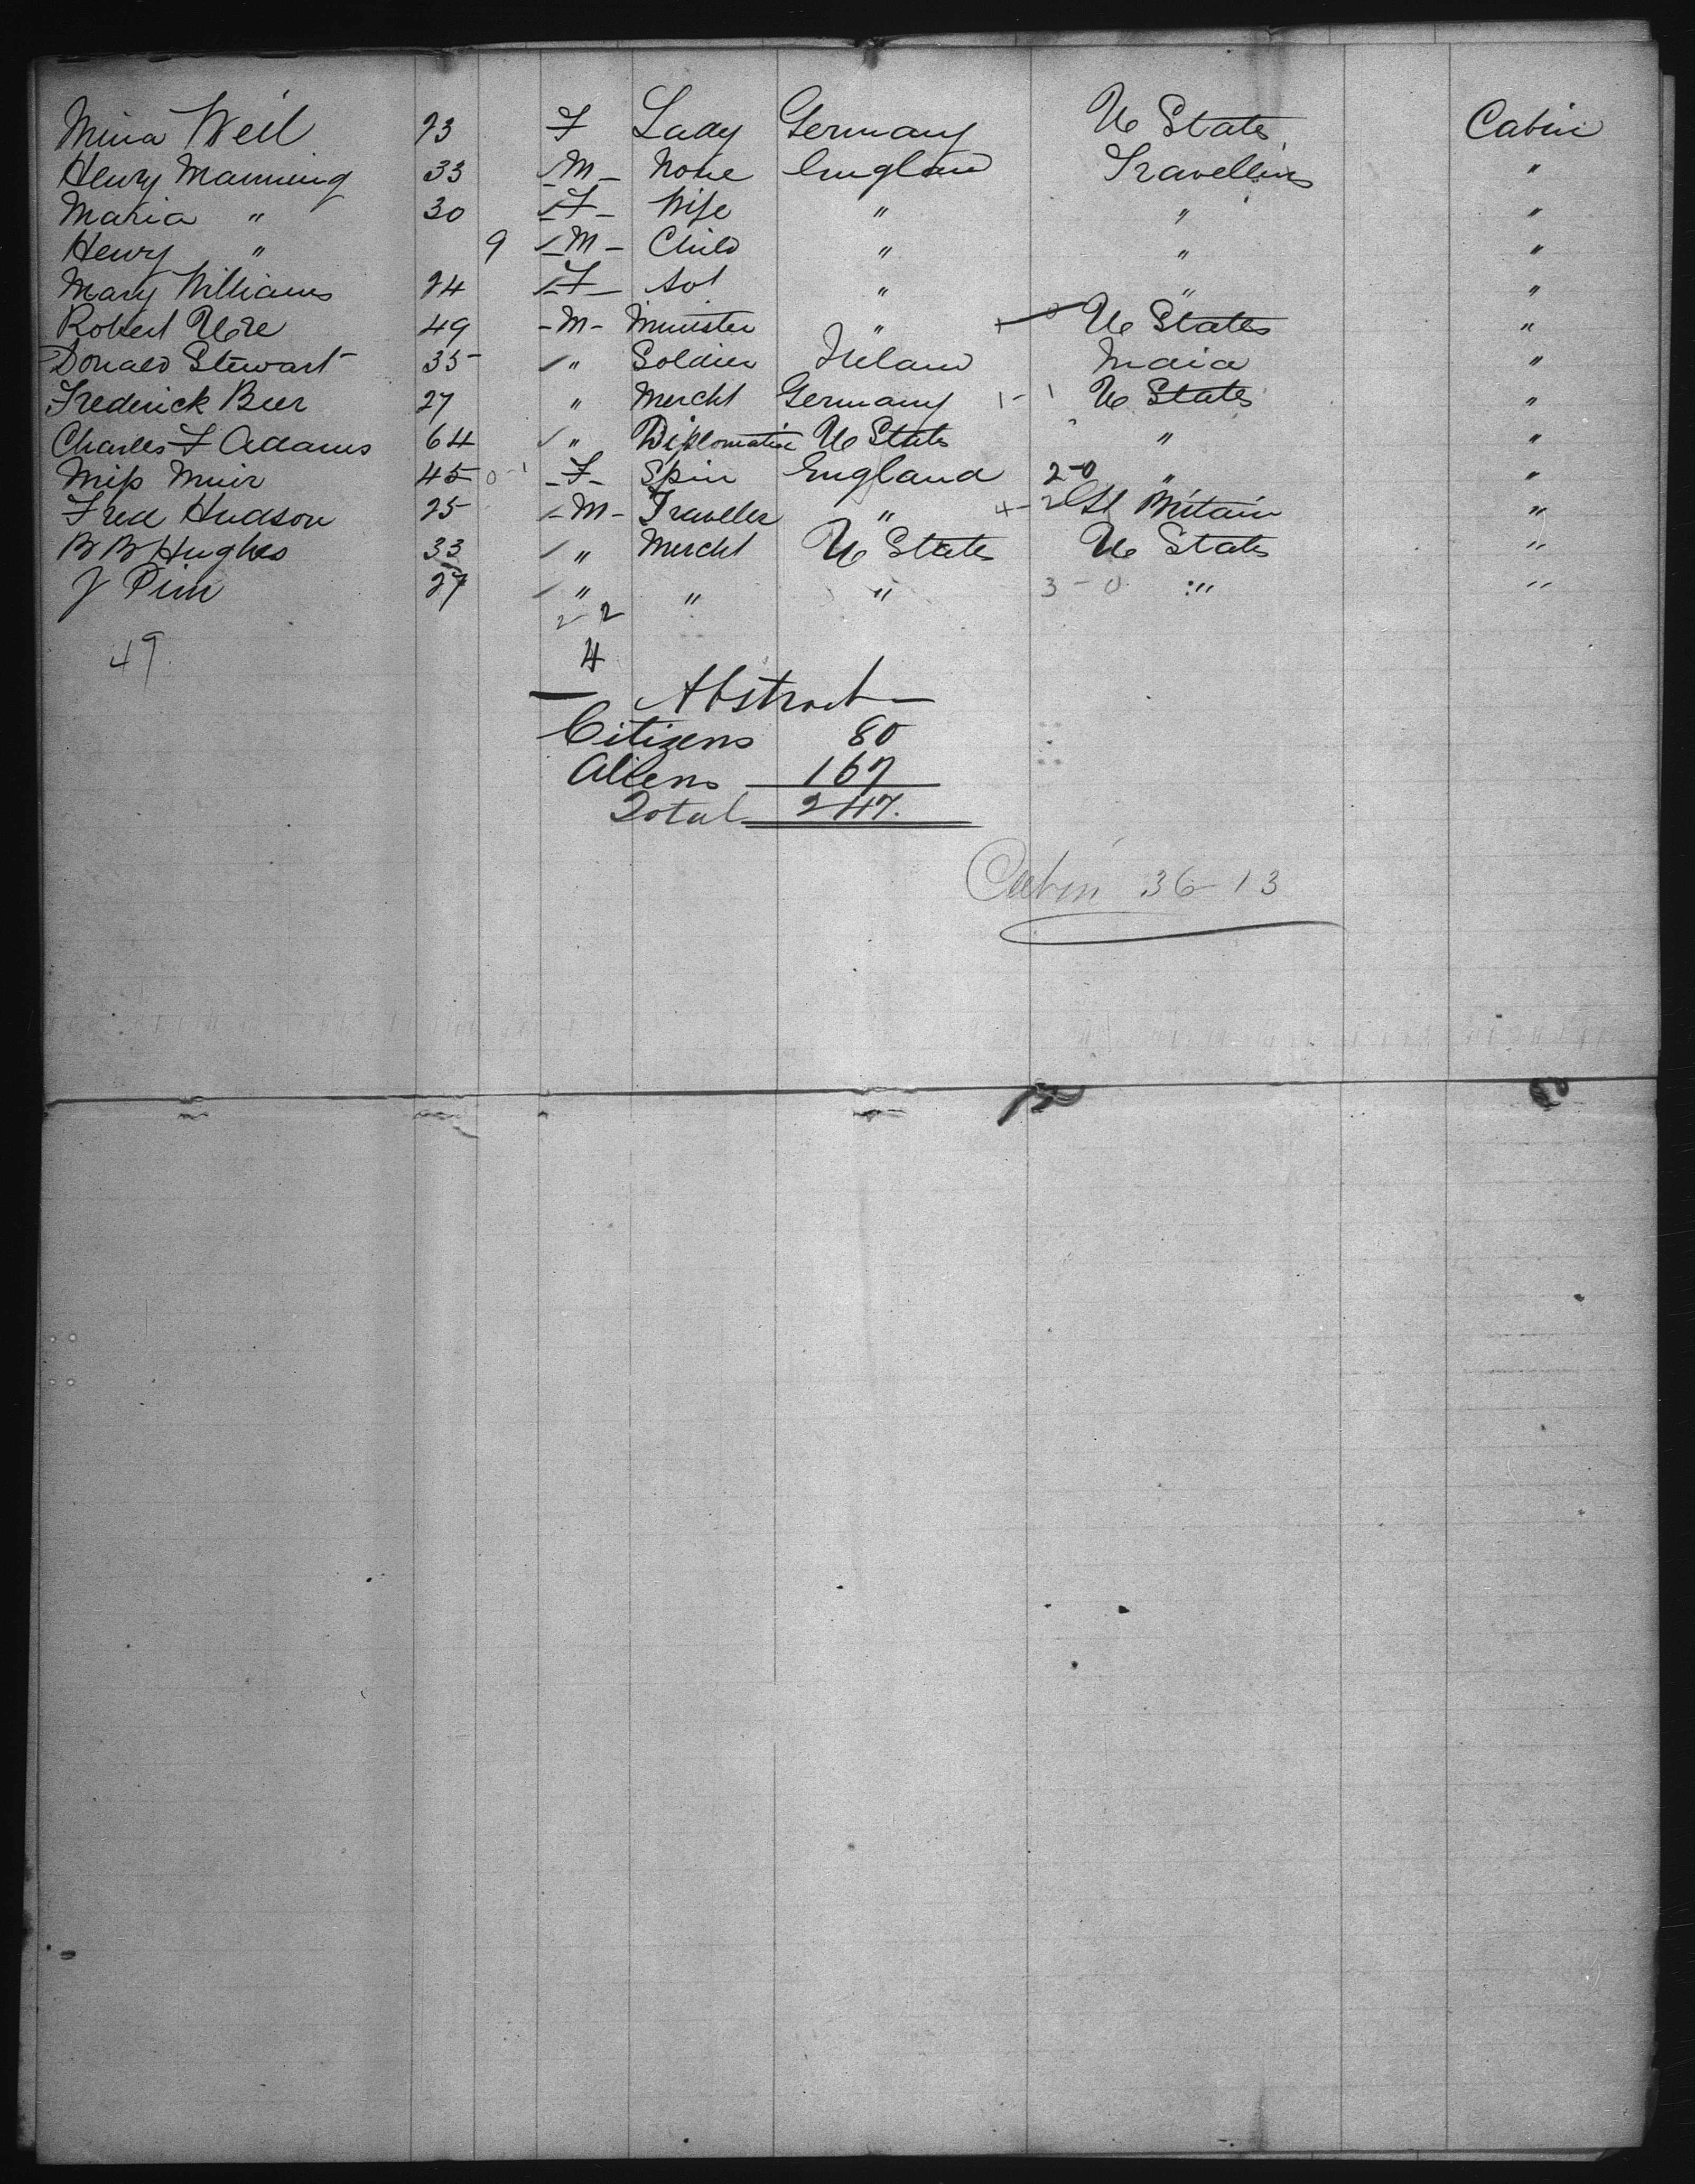 Mina Weil 23 F Lady Germany U States Cabin
Henry Manning 33 M None England Travelling "
Maria " 30 F Wife " " "
Henry " 9 M Child " " "
Mary Williams 24 F " " "
Robert Ure 49 M Minister " U States "
Donald Stewart 35 " Soldier Ireland India "
Frederick Beer 27 " Mercht Germany 1-1 U States "
Charles F Adams 64 " Diplomatist U States " "
Miss Muir 45 0-1 F Spin England 2-0 " "
Fred Hudson 25 M Traveller " Gt Britain "
B B Hughes 33 " Mercht U States U States "
J Pim 27 " " " 3-0 " "
2 2
49
4
Abstract
Citizens 80
Aliens 167
Total 247.
Cabin 36-13